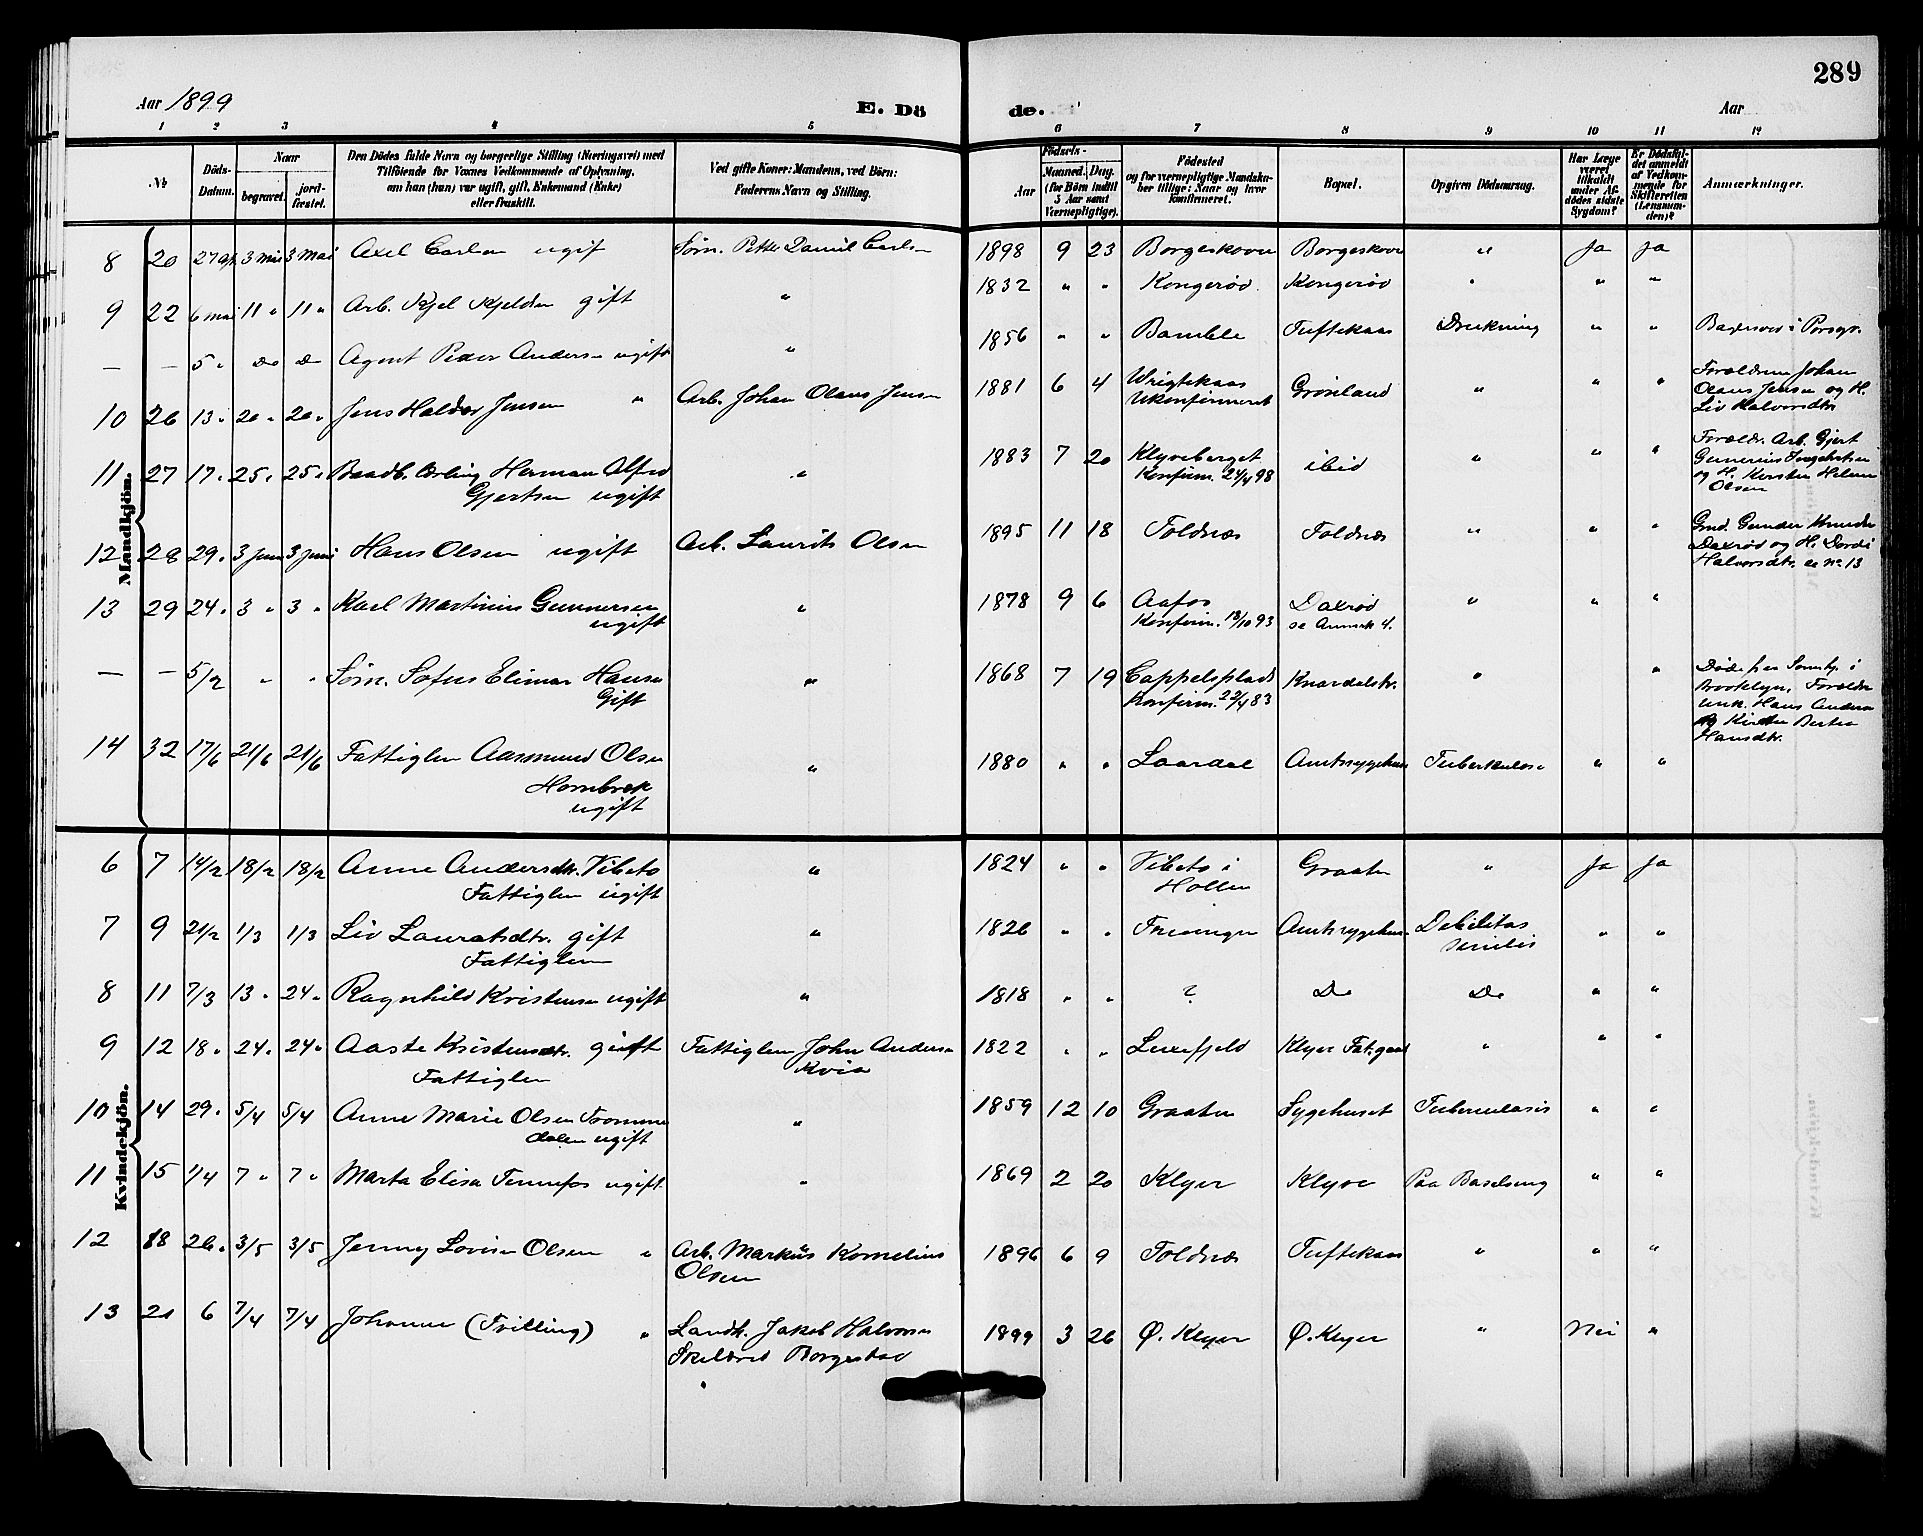 289
Aar 1899
E. Dö de.
Aar
1 2 3 4 5 6 7 8 9 10 11 12
No
Döds-Datum.
Naar
begravet.
jordfæstet.
Den Dödes fulde Navn og borgerlige Stilling (Næringsvei) med
Tilföiende for Voxnes Vedkommende af Oplysning,
om han (hun) var ugift, gift, Enkemand (Enke)
eller fraskilt.
Ved gifte Koner: Mandens, ved Börn:
Faderens Navn og Stilling.
Födsels-
Aar
Maaned. Dag.
(for Börn indtil
5 Aar samt
Værnepligtige).
Födested
og for værnepligtige Mandskaber tillige: Naar og hvor
konfirmeret.
Bopæl.
Opgiven Dödsaarsag.
Har Læge
været
tilkaldt
under Afdödes sidste
Sygdom?
Er Dödsfaldet anmeldt
af Vedkommende for
Skifteretten
(Lensmanden)?
Anmærkninger.
Mandkjön.
8 20 27 ap. 3 Mai 3 Mai Axel Carlsen ugift Søm. Petter Daniel Carlsen 1898 9 23 Borgeskoven Borgeskoven " Ja Ja
9 22 6 mai 11 " 11 " Arb. Kjel Kjeldsen gift " 1832 " " Kongerød Kongerød " " "
— — 5 " Do Do Agent Peder Andersen ugift " 1856 " " Bamble Tuftekaas Drukning " "
10 26 13 " 20 " 20 " Jens Haldor Jensen " Arb. Johan Olaus Jensen 1881 6 4 Wrigtekaas Ukonfirmeret Grønland " " " Forældrene Johan
Olaus Jensen og H.
Liv Halvorsdtr.
11 27 17 " 25 " 25 " Baadb. Erling Herman Alfred
Gjertsen ugift " 1883 7 20 Klyveberget
Konfirm. 24/4 98 ibid " " " Forældr. Arb. Gjert
og H. Kirsten Helene
Olsen
12 28 29 " 3 Juni 3 Juni Hans Olsen ugift Arb. Laurits Olsen 1895 11 18 Foldnæs Foldnæs " " "
13 29 24 " 3 " 3 " Karl Martinius Gunnersen
ugift " 1878 9 6 Aafos
Konfirm. 18/10 93 Daxrød
se Anmerk 4. " " " Gmd. Gunder Knudsen
Daxrød og H. Dordi
Halvorsdtr. ee No 13
— — 5/2 " " Søm. Sofus Elimar Hansen
Gift " 1868 7 19 Cappelsplads
Konfirm. 22/4 83 Knardalstr. " "
Brooklyn. Forældre
Hans Andersen
og Kirsten Bertea
Hansdtr.
14 32 17/6 21/6 21/6 Fattiglem Aasmund Olsen
Hornbrek
ugift " 1880 " " Laardal Amtssygehus Tuberkulose " "
Kvindekjön.
6 7 14/2 18/2 18/2 Anne Andersdtr. Vibeto
Fattiglem ugift " 1824 " " Vibeto i
Hollen Graaten " Ja Ja
7 9 21/2 1/3 1/3 Liv Lauratsdtr. gift
Fattiglem " 1826 " " Amtssygehus Debilitas
senilis " "
8 11 7/3 13 " 24 " Ragnhild Kristensen ugift " 1818 " " ? Do Do " "
9 12 18 " 24 " 24 " Aaste Kristensdtr. gift
Fattiglem Fattiglem John Andersen
Kvia 1822 " " Luxefjeld Klyve Fat.gaard " " "
10 14 29 " 5/4 5/4 Anne Marie Olsen Tromme
dalen ugift " 1859 12 10 Graaten Sygehuset Tuberculosis " "
11 15 1/4 7 " 7 " Marta Elisa Tennefos ugift. " 1869 2 20 Klyve Klyve Paa Barselseng " "
12 18 26 " 3/5 3/5 Jenny Lovise Olsen " Arb. Markus Kornelius
Olsen 1896 6 9 Foldnæs Tuftekaas " " "
13 21 6 7/4 7/4 Johanne (Tvilling) " Landh. Jakob Halvorsen
Skilbred Borgestad 1899 3 26 Ø. Klyve Ø. Klyve " Nei "